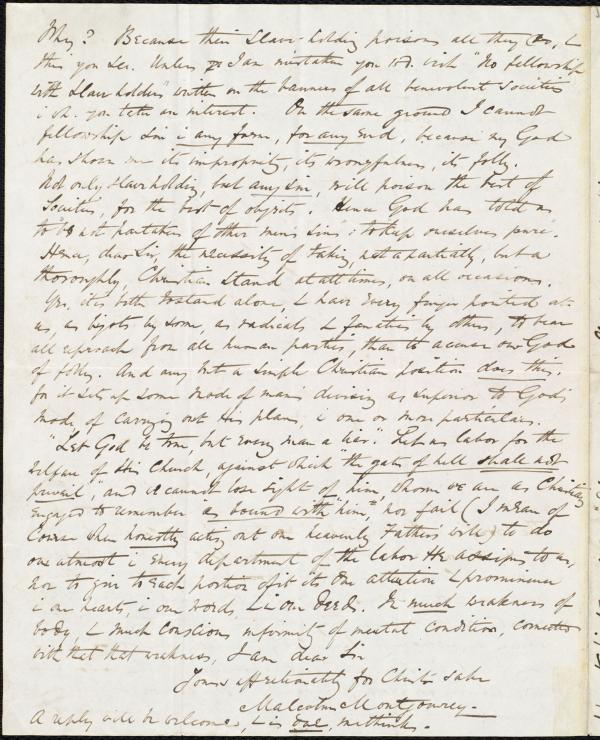 Why? Because their Slave-holding poisons all they do, &
this you see. Unless I am mistaken you wd. wish "No fellowship
with Slaveholders" written on the banners of all benevolent Societies
i wh. you take an interest. On the same ground I cannot
fellowship Sin i any form, for any End, because my God
has shown me its impropriety, its wrongfulness, its folly.
Not only Slaveholding, but any Sin, will poison the best of
Societies, for the best of objects. Hence God has told us
to "be not partakers of other mens Sins: to keep ourselves pure."
Hence, dear Sir, the necessity of taking, not a partially, but a
thoroughly, Christian Stand at all times, on all occasions.
Yes, it is both to stand alone, & have every finger pointed at
us, as bigots by some, as radicals & fanatics by others, to bear
all reproach from all human parties, than to accuse our God
of folly. And any but a simple Christian position does this,
for it sets up some mode of mans devising as superior to God's
mode of carrying out His plans, i one or more particulars.
"Let God be true, but every man a liar." Let us labor for the
welfare of His Church, against which "the gates of hell shall not
prevail", and we cannot lose sight of him, whom we are as Christians
engaged to remember as bound with "him", nor fail (I mean of
course when honestly acting out our heavenly Father's will) to do
our utmost i every department of the labor He assigns to us,
nor to give to each portion of it its due attention & prominence
i our hearts, i our words, & i our deeds. In much weakness of
body, & much conscious infirmity of mental condition, connected
with that weakness, I am dear Sir
Yours affectionately for Christ's sake
Malcolm Montgomery.
A reply will be welcomed, & is due, methinks.